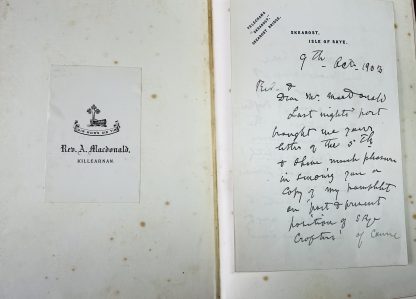 Rev. A. Macdonald,
KILLEARNAN.
TELEGRAMS
"SKEABOST,"
SKEABOST BRIDGE.
SKEABOST,
ISLE OF SKYE.
9th Oct 1903
Rev. &
Dear Mr. MacDonald
Last nights post
brought me your
letter of the 5th
& I have much pleasure
in sending you a
copy of my pamphlet
on past & present
position of Skye
Crofters' of Course